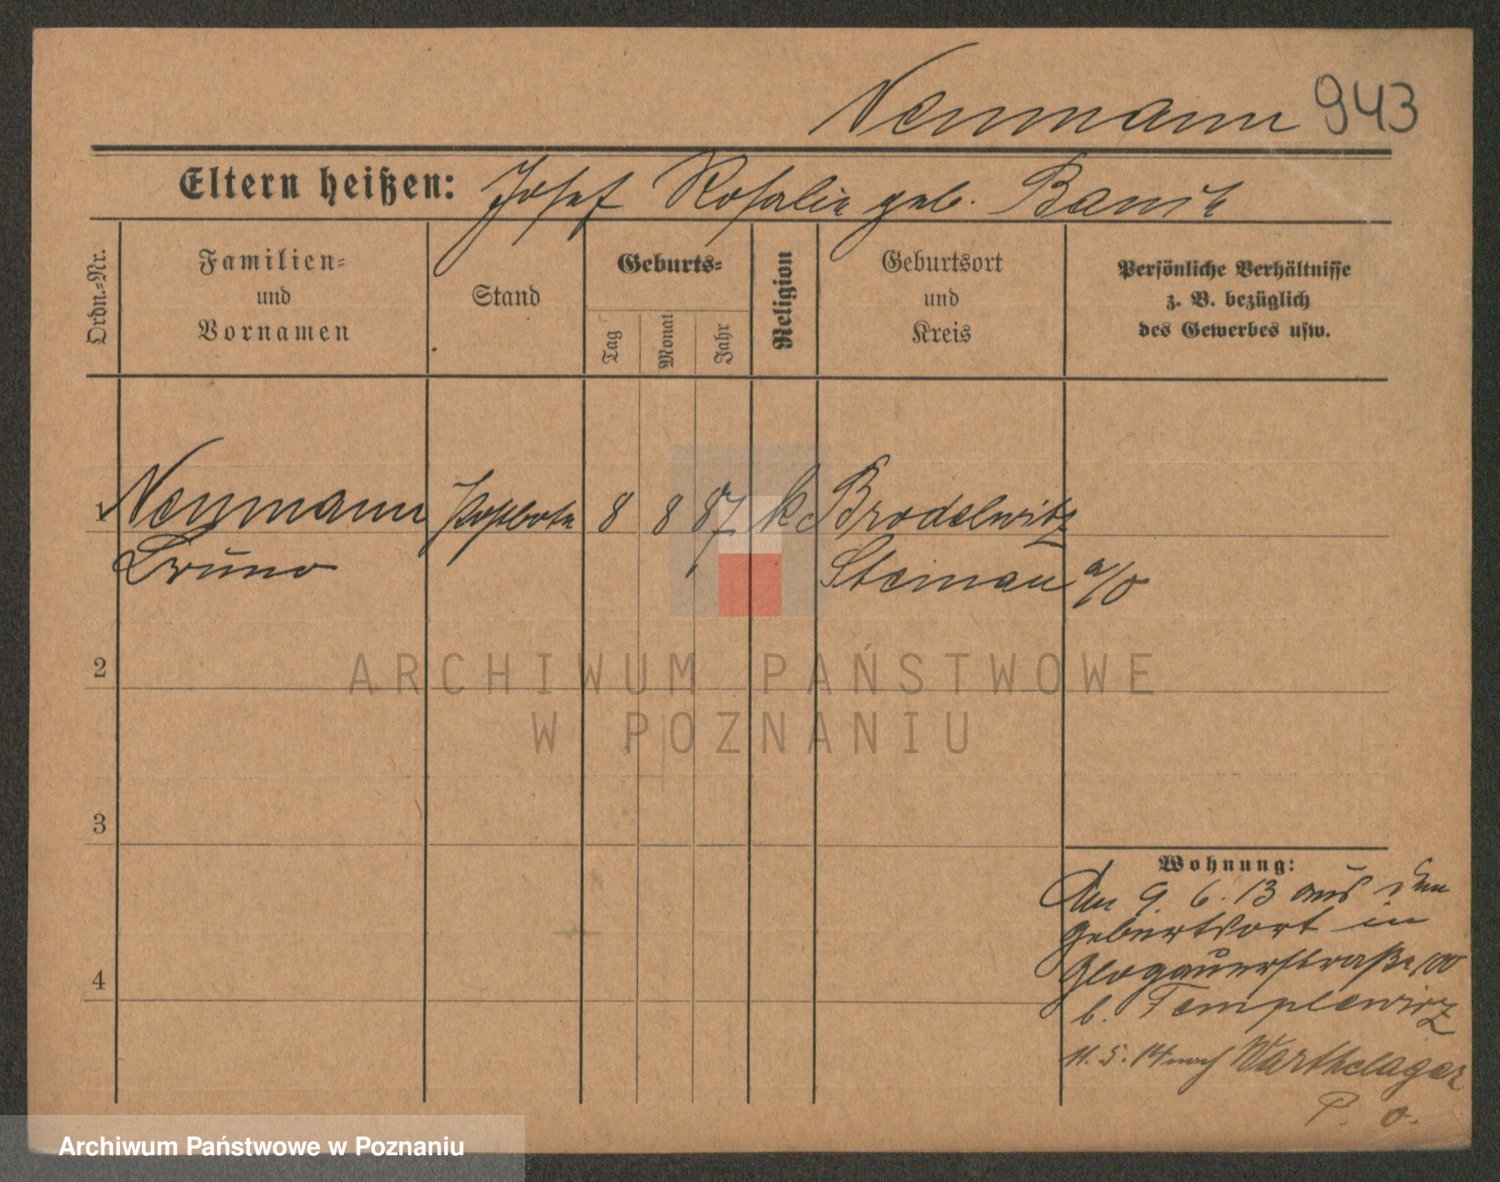 Neumann 943
Eltern heißen: Josef Rosalie geb. Banik
Ordn.-Nr.
Familien-
und
Vornamen
Stand
Geburts-
Tag
Monat
Jahr
Religion
Geburtsort
und
Kreis
Persönliche Verhältnisse
z. B. bezüglich
des Gewerbes usw.
1 Neumann Postbote 8 8 87 k Brodelwitz
Bruno Steinau a/O
2
ARCHIWUM PAŃSTWOWE
W POZNANIU
3
Wohnung:
Am 9. 6. 13 aus dem
Geburtsort in
4 Glogauerstraße 100
b. Templewicz
11. 5. 14 nach Warthelager
P. O.
Archiwum Państwowe w Poznaniu